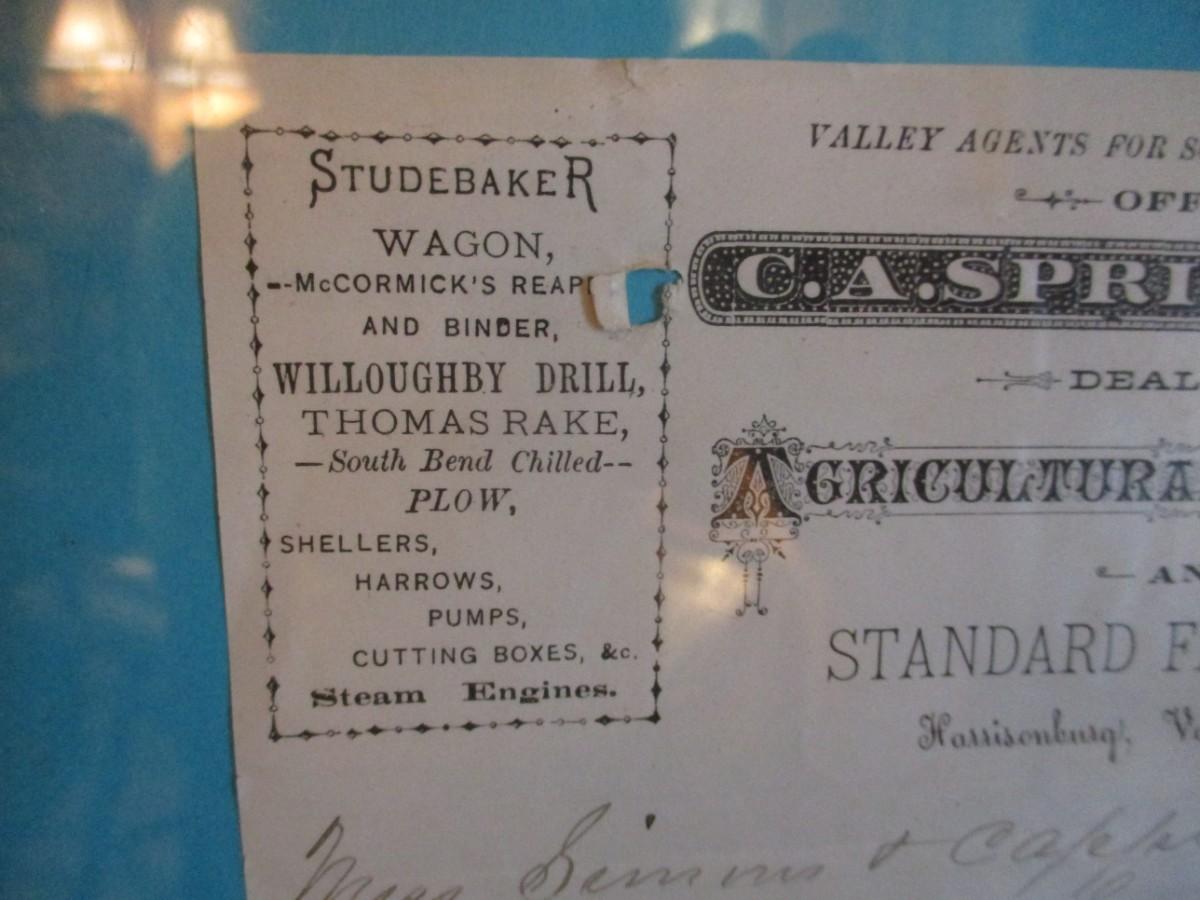 STUDEBAKER
WAGON,
--McCORMICK'S REAP
AND BINDER,
WILLOUGHBY DRILL,
THOMAS RAKE,
—South Bend Chilled--
PLOW,
SHELLERS,
HARROWS,
PUMPS,
CUTTING BOXES, &c.
Steam Engines.
VALLEY AGENTS FOR S
OFF
C.A.SPRI
DEAL
AGRICULTURA
AN
STANDARD F
Harrisonburg, Va
Simons & Capp